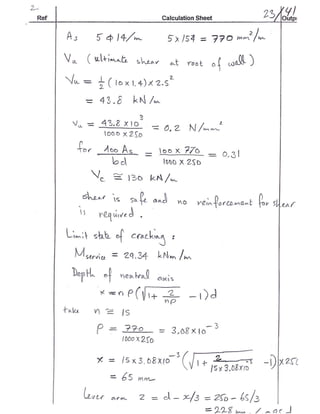 2
Ref Calculation Sheet 23/41 Outp
As 5 ϕ 14/m 5 x 154 = 770 mm²/m
Vu ( ultimate shear at root of wall )
Vu = 1/2 ( 10 x 1.4 ) x 2.5²
= 43.8 kN/m
vu = 43.8 x 10³ / 1000 x 250 = 0.2 N/mm²
for 100 As / bd = 100 x 770 / 1000 x 250 = 0.31
Vc ≅ 130 kN/m
shear is safe and no reinforcement for shear
is required .
Limit state of cracking :
M service = 29.34 kNm/m
Depth of neutral axis
x = n P ( √ 1 + 2 / nP - 1 ) d
take n ≅ 15
P = 770 / 1000 x 250 = 3.08 x 10⁻³
x = 15 x 3.08 x 10⁻³ ( √ 1 + 2 / 15 x 3.08 x 10⁻³ - 1 ) x 250
= 65 mm
Lever arm z = d - x/3 = 250 - 65/3
= 228 mm